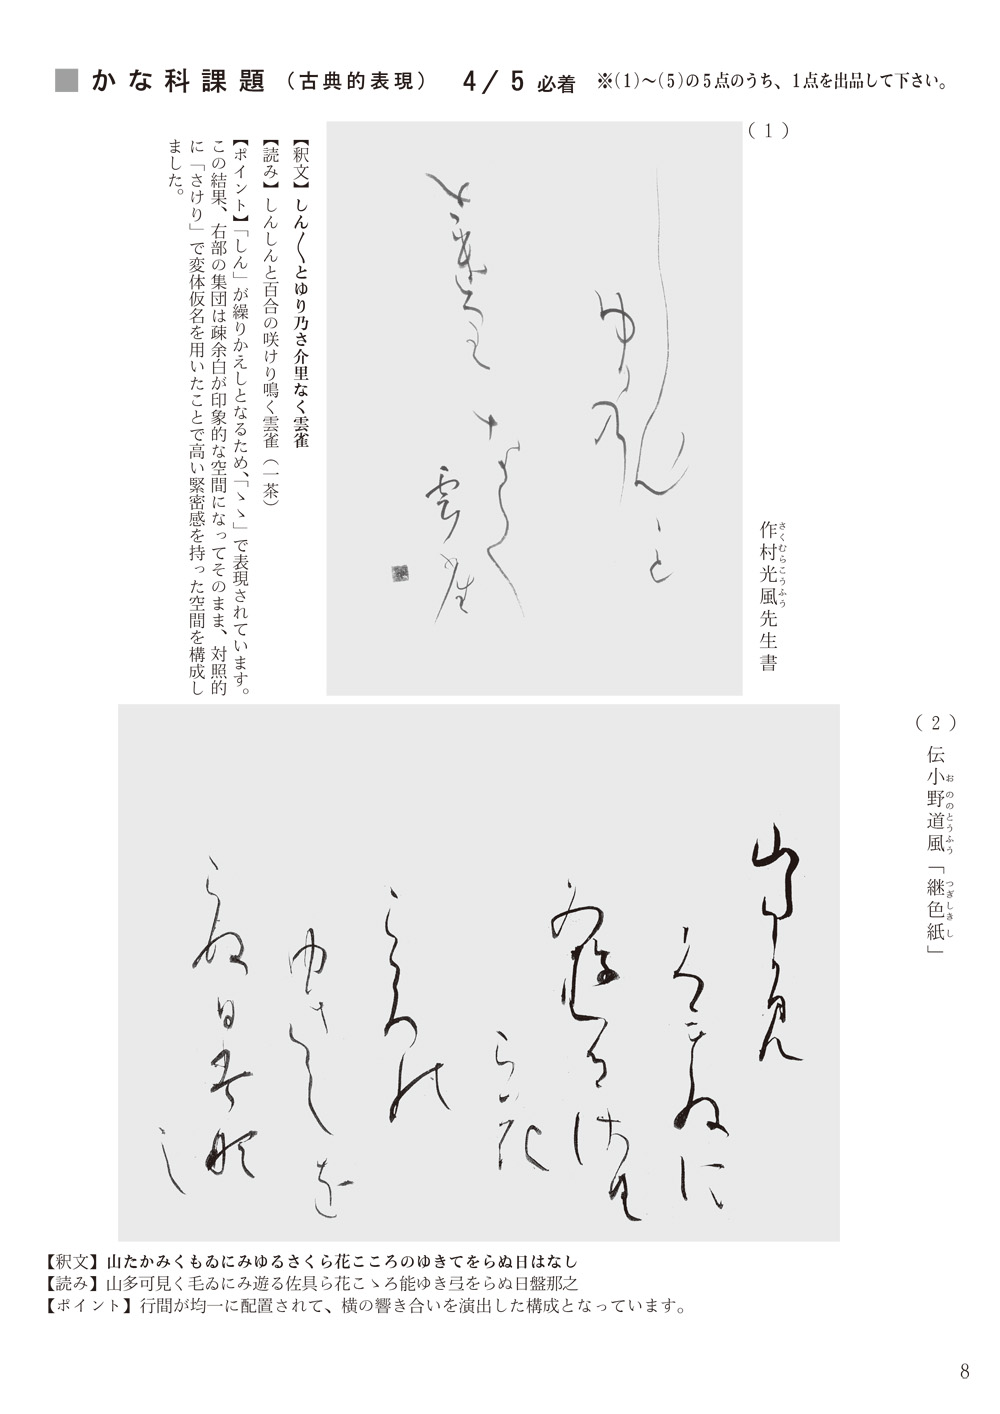 ■かな科課題（古典的表現） 4/5 必着 ※(1)～(5)の5点のうち、1点を出品して下さい。
（1）
作村光風先生書
さくむらこうふう
【釈文】しん〱とゆり乃さ介里なく雲雀
【読み】しんしんと百合の咲けり鳴く雲雀（一茶）
【ポイント】「しん」が繰りかえしとなるため、「ヽヽ」で表現されています。
この結果、右部の集団は疎余白が印象的な空間になってそのまま、対照的
に「さけり」で変体仮名を用いたことで高い緊密感を持った空間を構成し
ました。
しん〱と
ゆり乃
さ介里
なく
雲雀
（2）
伝小野道風「継色紙」
おののとうふう つぎしきし
山多可見
く毛ゐに
み遊る佐具
ら花
こゝろ能
ゆき弖を
らぬ日盤那
之
【釈文】山たかみくもゐにみゆるさくら花こころのゆきてをらぬ日はなし
【読み】山多可見く毛ゐにみ遊る佐具ら花こゝろ能ゆき弖をらぬ日盤那之
【ポイント】行間が均一に配置されて、横の響き合いを演出した構成となっています。
8